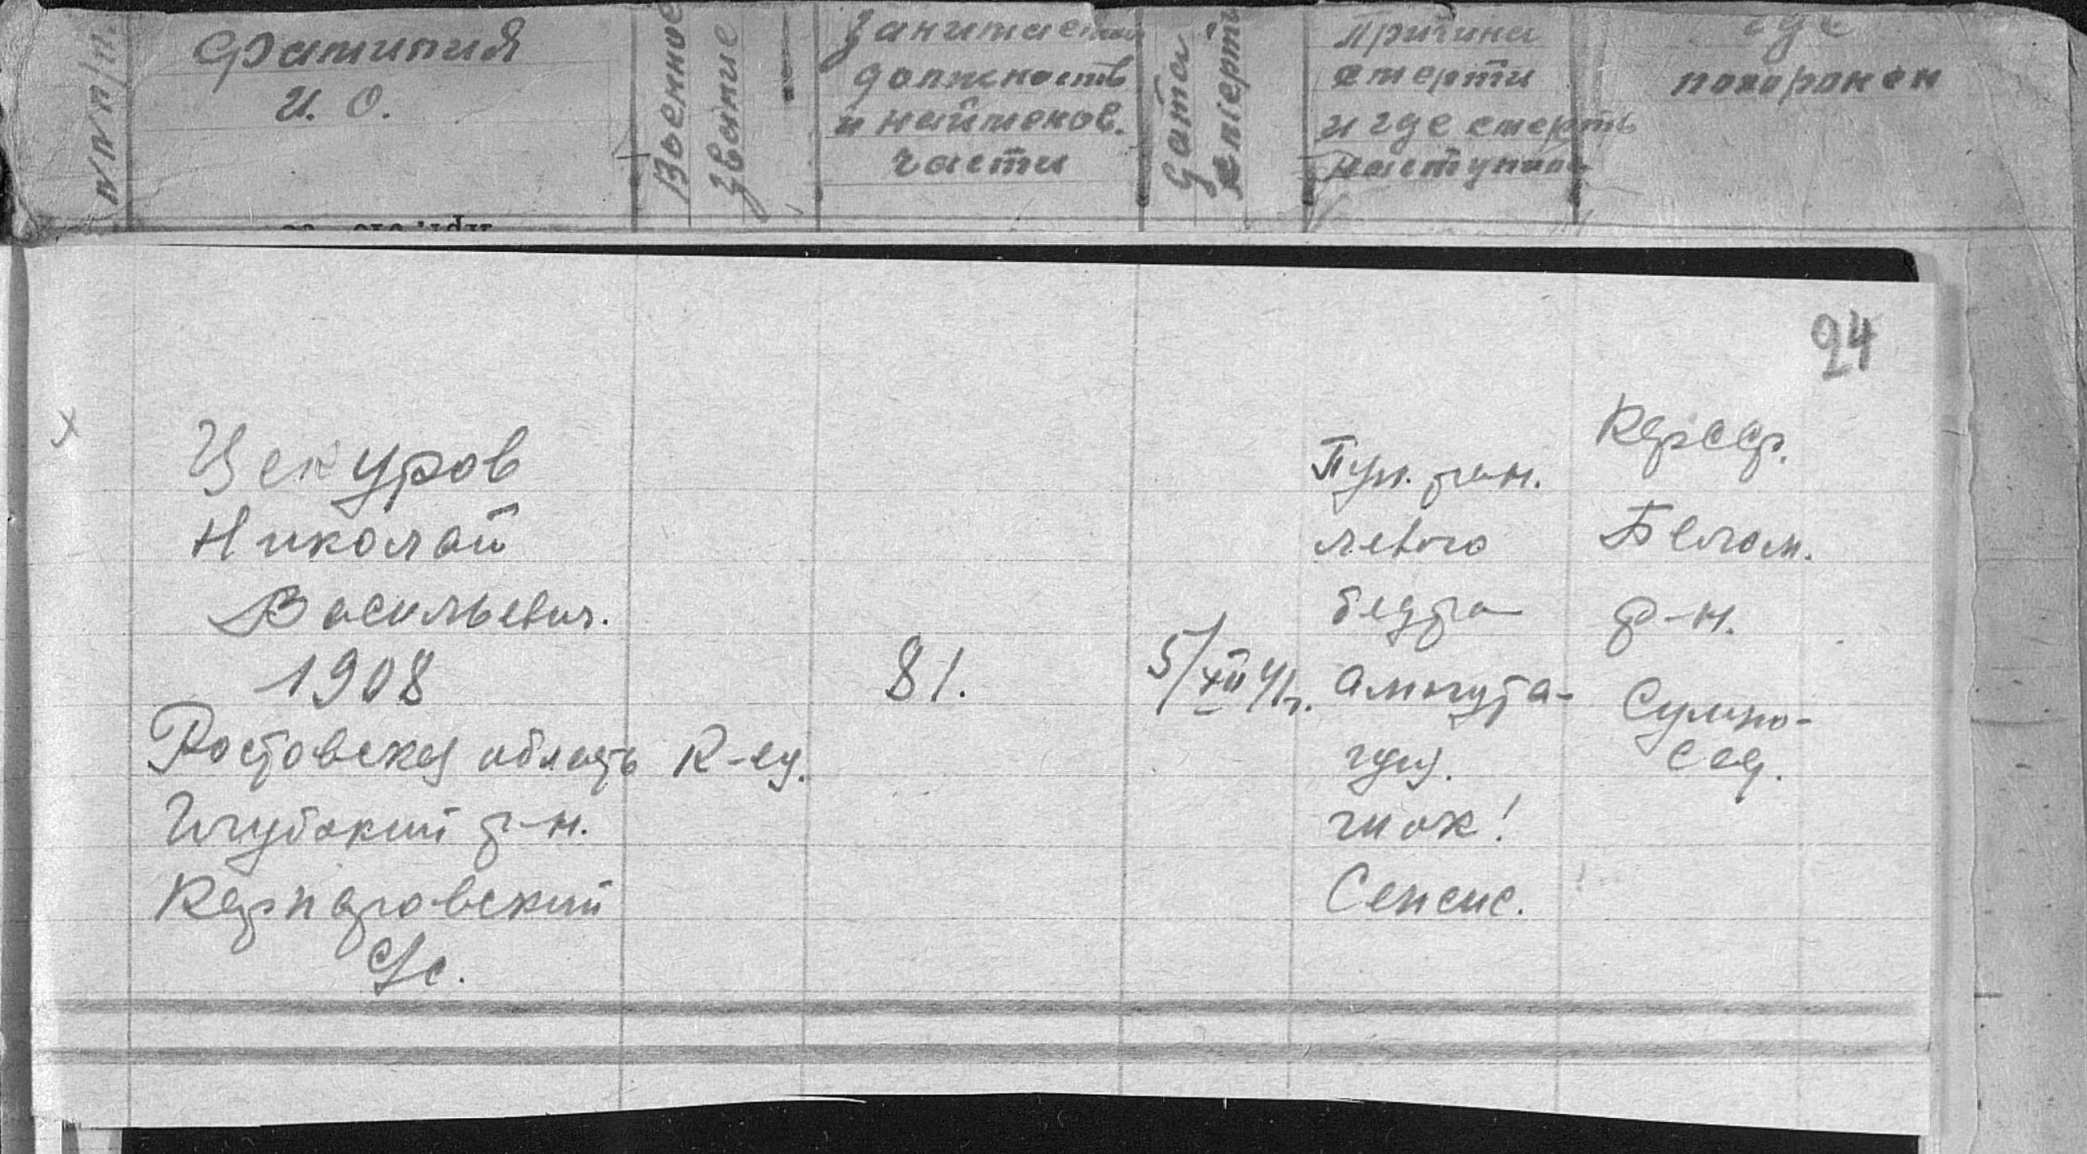 №№ п/п.
Фамилия
И. О.
Военное
звание
Занимаемая
должность
и наименов.
части
Дата
смерти
Причина
смерти
и где смерть
наступила
где
похоронен
24
х
Цекуров
Николай
Васильевич.
1908
Ростовская область
Глубокий р-н.
Карповский
с/с.
К-ец.
81.
5/XII 41г.
Пул. ран.
левого
бедра
ампута-
ция.
шок!
Сепсис.
КФССР.
Белом.
р-н.
Сумпо-
сад.